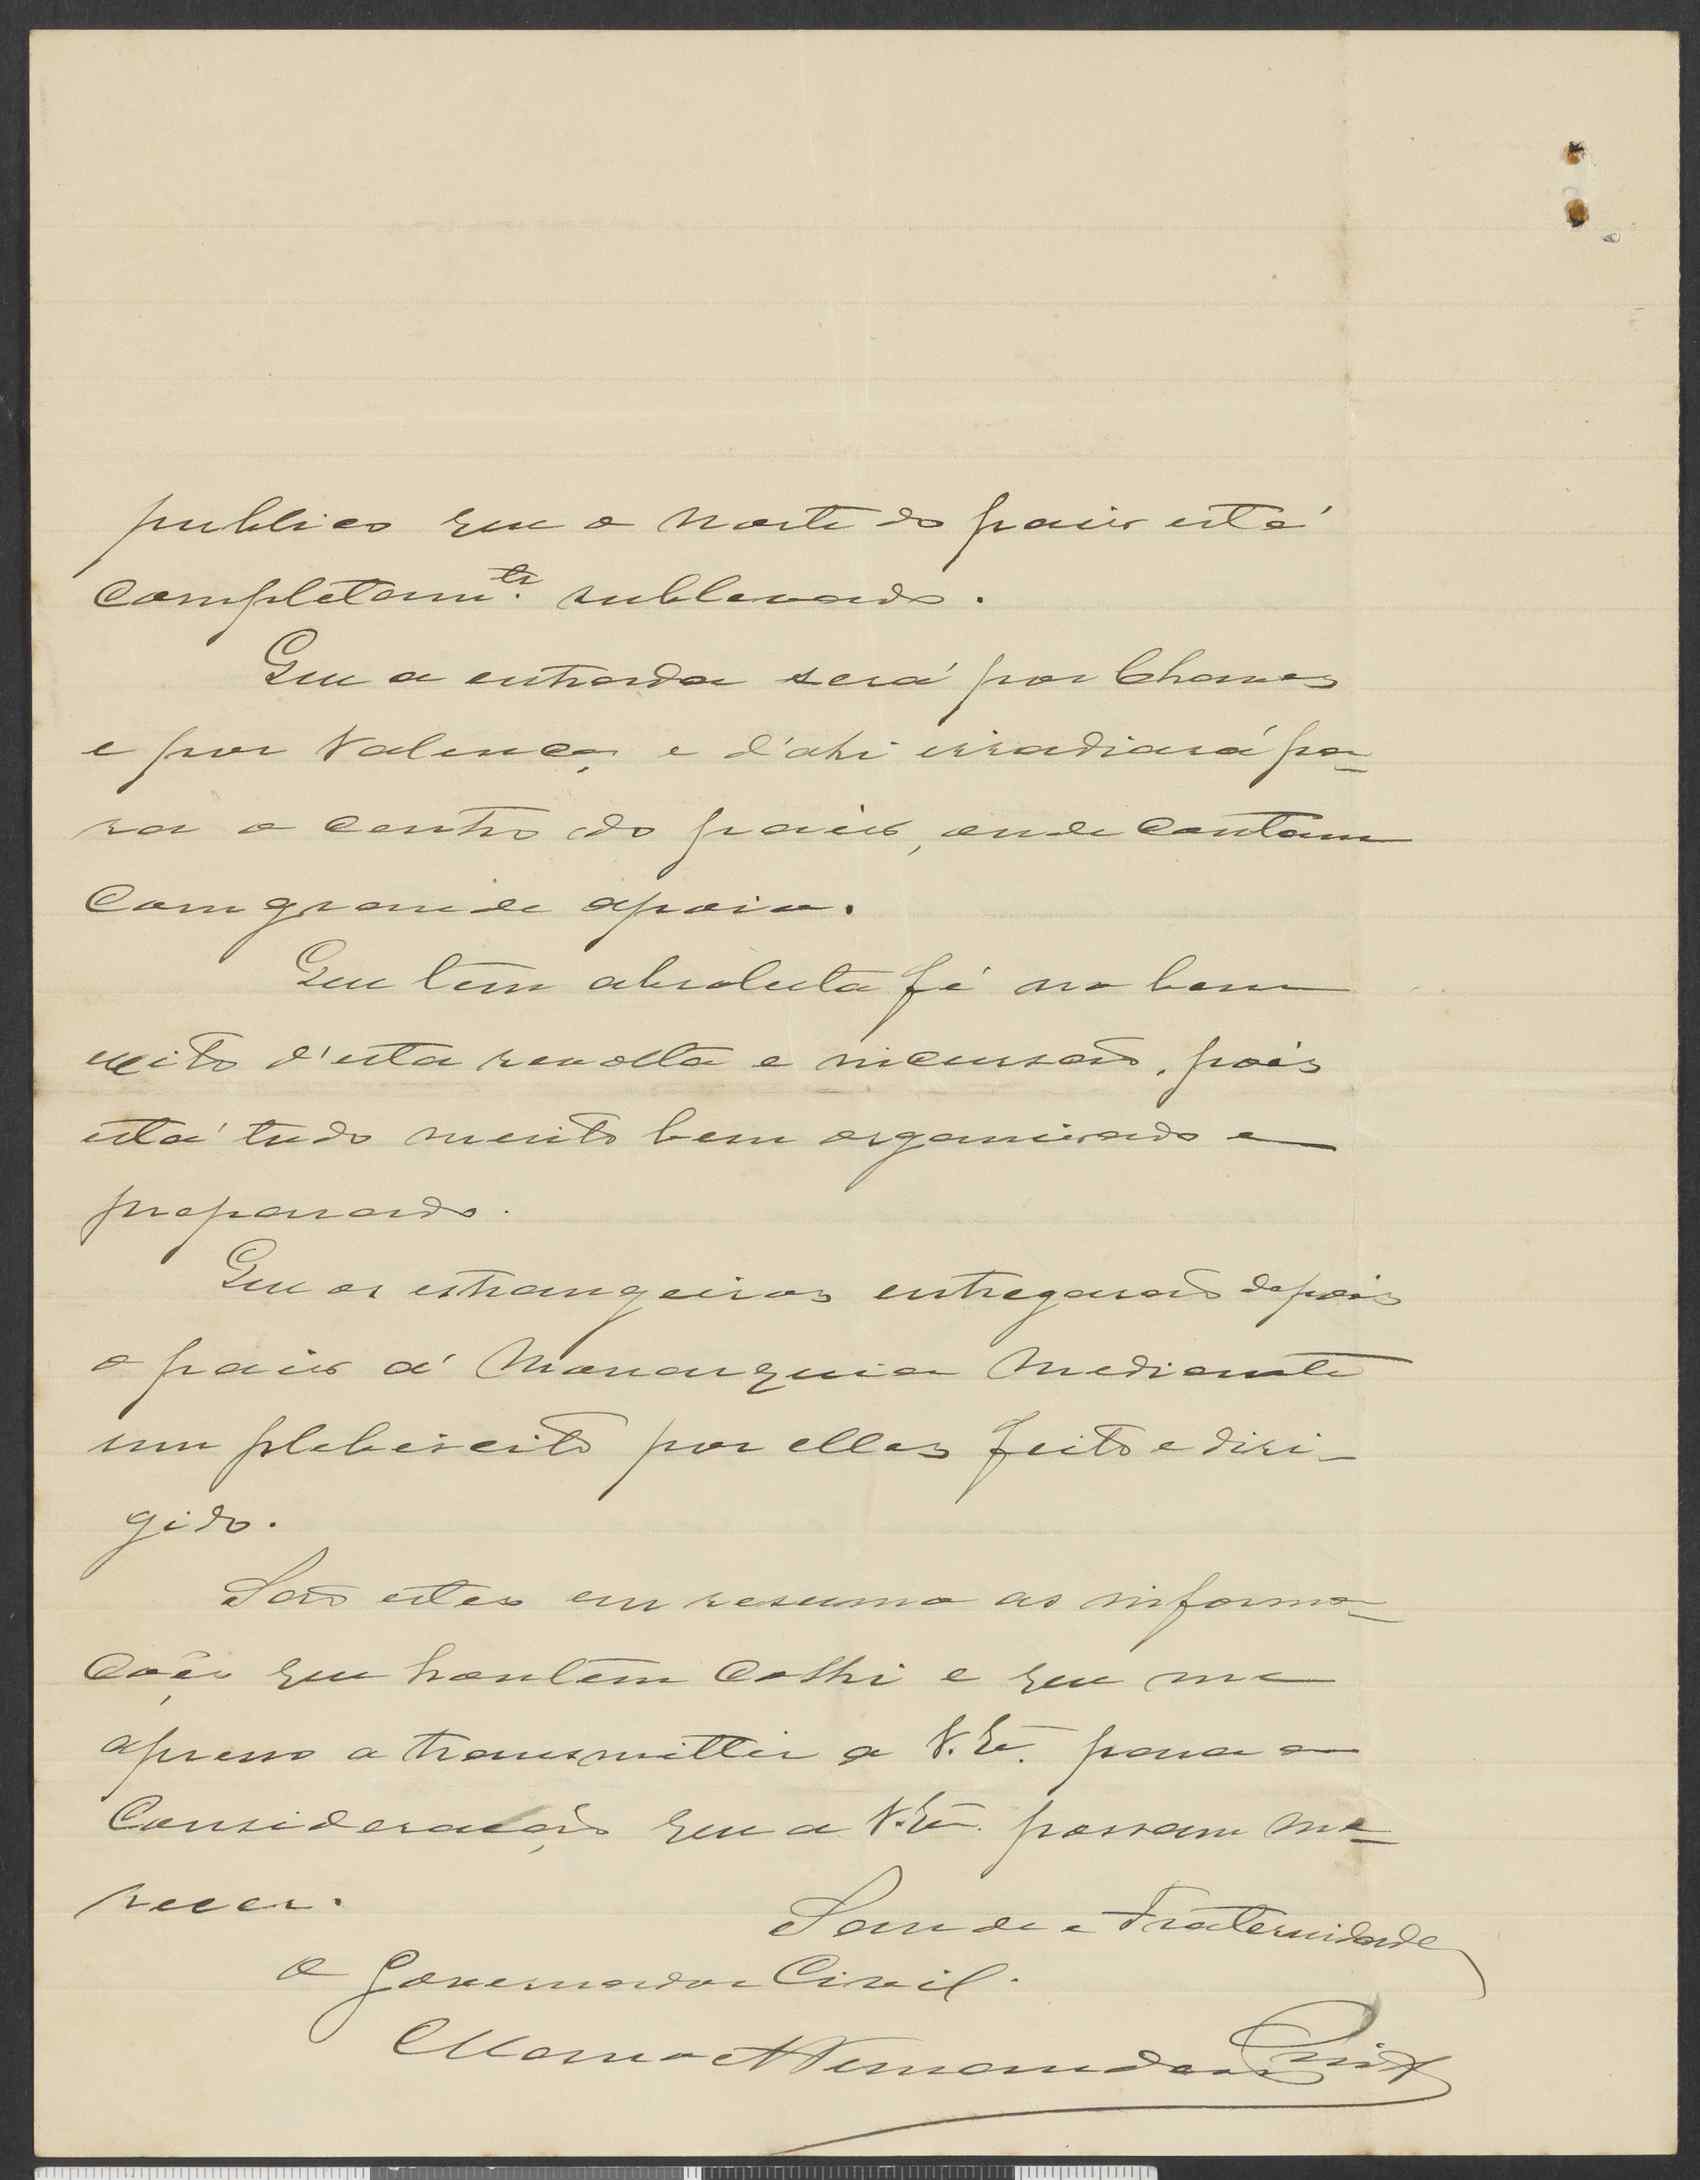 publico que o norte do paiz está
completamte. sublevado.
Que a entrada será por Chaves
e por Valença e d'ahi irradiará pa-
ra o centro do paiz, onde contam
com grande apoio.
Que tem absoluta fé no bom
exito d'esta revolta e incursão, pois
está tudo muito bem organisado e
preparado.
Que os estrangeiros entregarão depois
o paiz á Monarquia mediante
um plebiscito por elles feito e diri-
gido.
São estes em resumo as informa-
ções que hontem colhi e que me
apresso a transmittir a V. Ex. para a
consideração que a V. Ex. possam me-
recer.
Saude e Fraternidade
O Governador Civil.
Manoel Fernandes